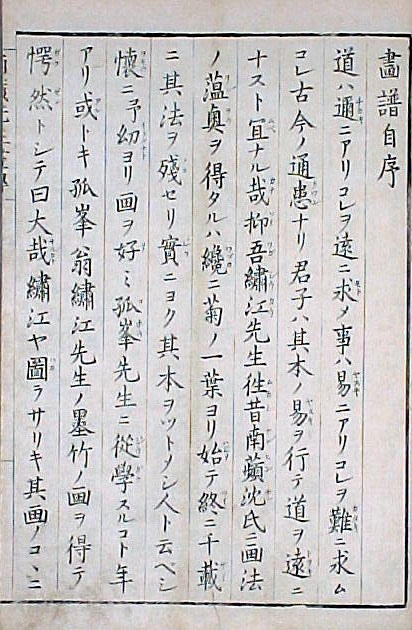 畫譜自序
道ハ邇ニアリコレヲ遠ニ求メ事ハ易ニアリコレヲ難ニ求ム
コレ古今ノ通患ナリ君子ハ其本ノ易ヲ行テ道ヲ遠ニ
ナスト宜ナル哉抑吾繡江先生徃昔南蘋沈氏ニ画法
ノ薀奥ヲ得タルハ纔ニ菊ノ一葉ヨリ始テ終ニ千載
ニ其法ヲ殘セリ實ニヨク其本ヲツトメシ人ト云ベシ
懷ニ予幼ヨリ画ヲ好ミ孤峯先生ニ從學スルコト年
アリ或トキ孤峯翁繡江先生ノ墨竹ノ画ヲ得テ
愕然トシテ曰大哉繡江ヤ圖ラサリキ其画ノコヽニ